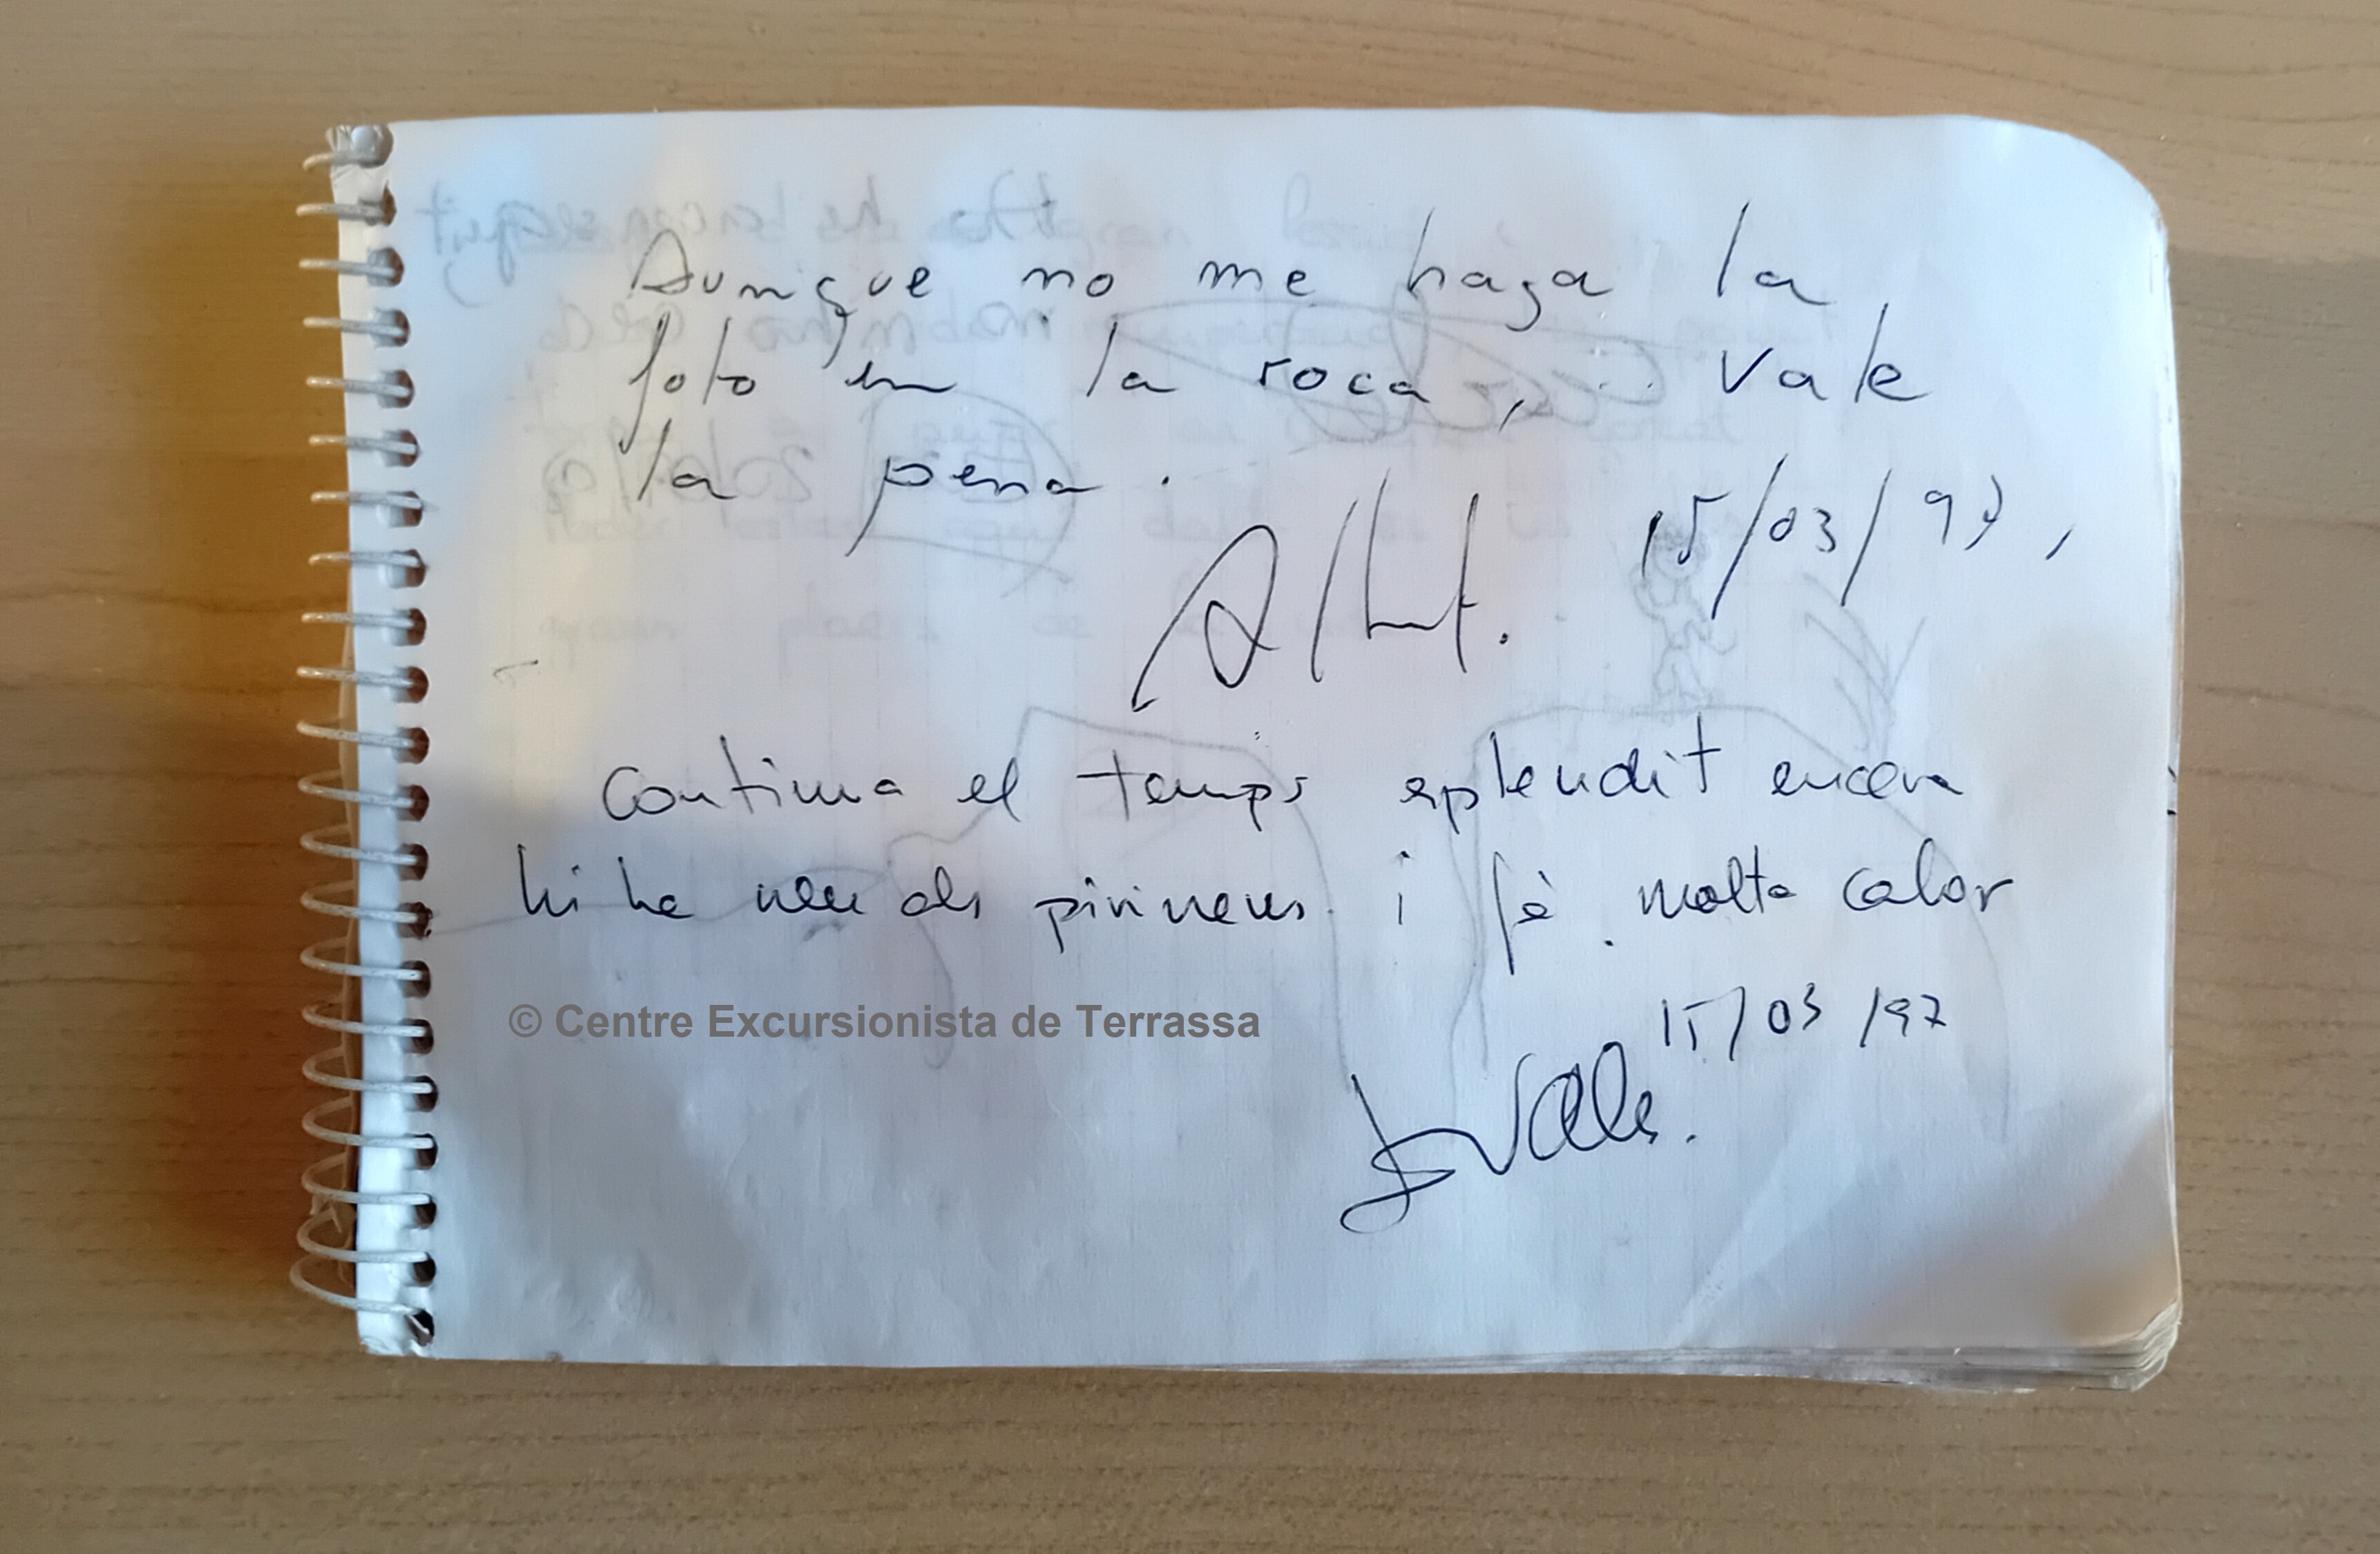 Aunque no me haga la
foto en la roca, vale
la pena.
15/03/97,
Albert.
Continua el temps esplendit encara
hi ha neu als pirineus i fà molta calor
© Centre Excursionista de Terrassa
15/03/97